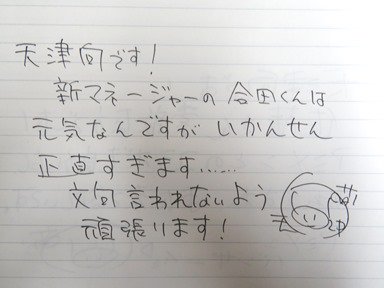 天津向です!
新マネージャーの合田くんは
元気なんですがいかんせん
正直すぎます……
文句言われないよう
頑張ります!